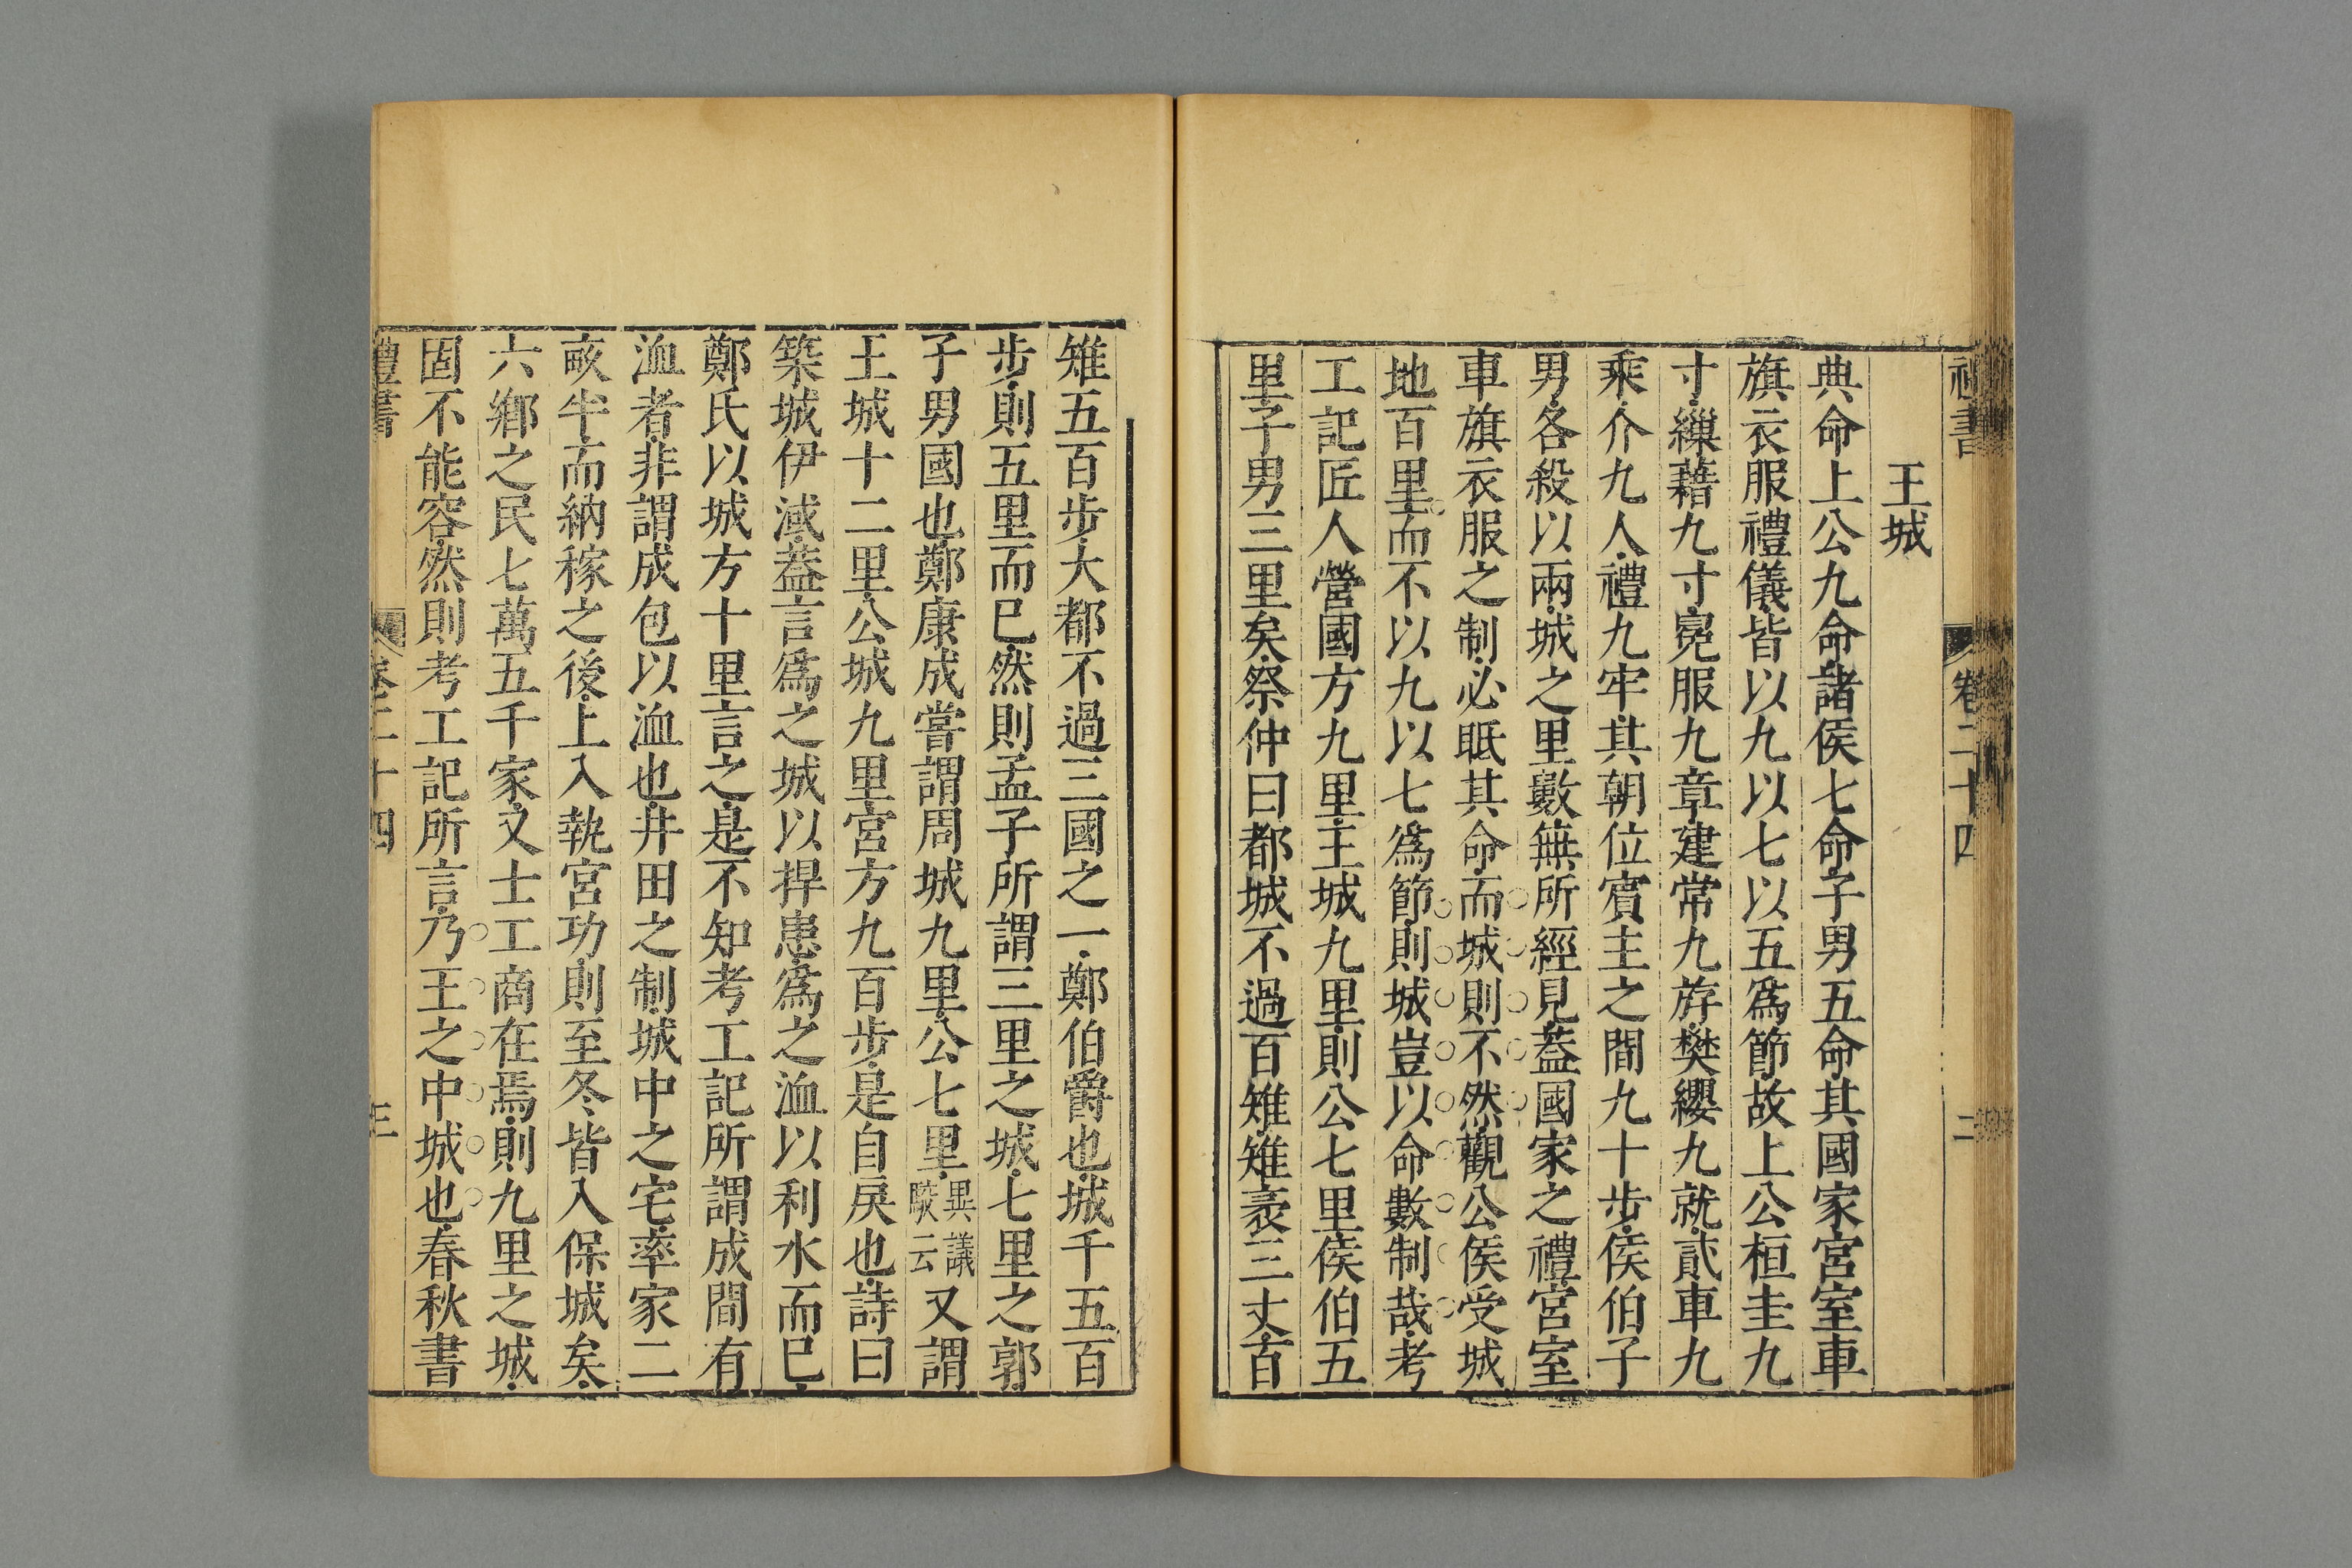 禮書
卷二十四
二
王城
典命上公九命諸侯七命子男五命其國家宮室車
旗衣服禮儀皆以九以七以五爲節故上公桓圭九
寸繅藉九寸冕服九章建常九斿樊纓九就貳車九
乘介九人禮九牢其朝位賓主之間九十步侯伯子
男各殺以兩城之里數無所經見葢國家之禮宮室
車旗衣服之制必眡其命而城則不然觀公侯受城
地百里而不以九以七爲節則城豈以命數制哉考
工記匠人營國方九里王城九里則公七里侯伯五
里子男三里矣祭仲曰都城不過百雉雉袤三丈百
雉五百步大都不過三國之一鄭伯爵也城千五百
步則五里而已然則孟子所謂三里之城七里之郭
子男國也鄭康成嘗謂周城九里公七里異議駮云又謂
王城十二里公城九里宮方九百步是自戾也詩曰
築城伊淢葢言爲之城以捍患爲之洫以利水而已
鄭氏以城方十里言之是不知考工記所謂成間有
洫者非謂成包以洫也井田之制城中之宅率家二
畝半而納稼之後上入執宮功則至冬皆入保城矣
六鄉之民七萬五千家又士工商在焉則九里之城
固不能容然則考工記所言乃王之中城也春秋書
禮書
卷二十四
三